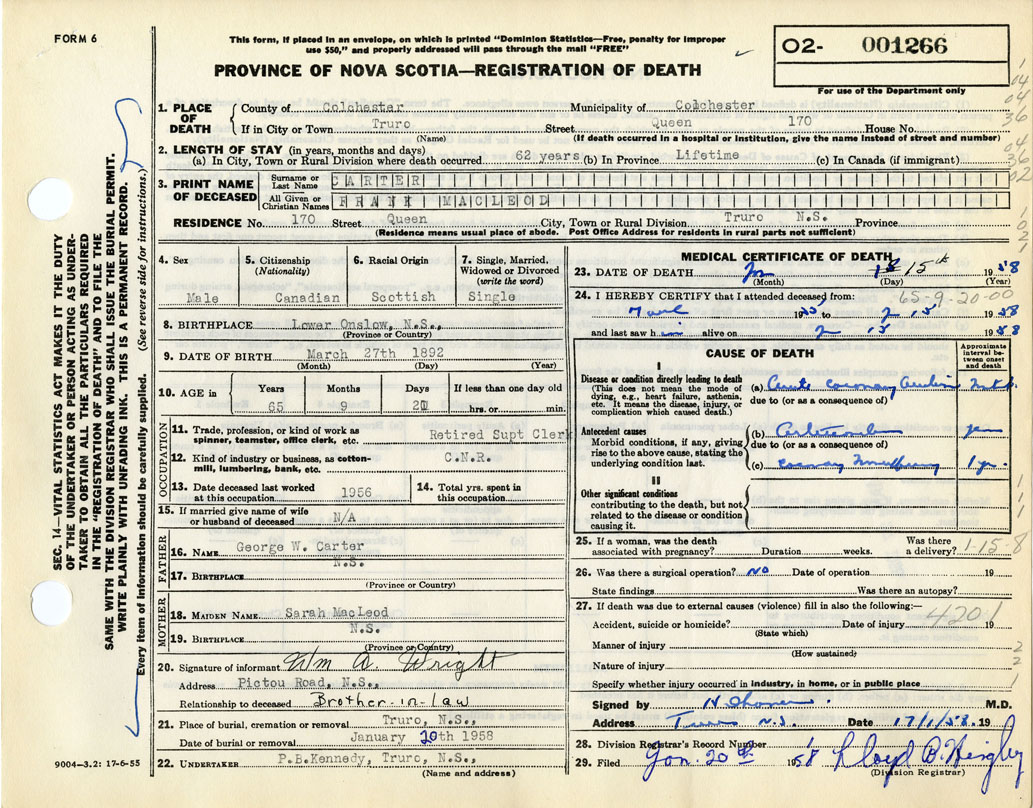 FORM 6
This form, if placed in an envelope, on which is printed "Dominion Statistics—Free, penalty for improper
use $50," and properly addressed will pass through the mail "FREE"
PROVINCE OF NOVA SCOTIA—REGISTRATION OF DEATH
02- 001266
For use of the Department only
1. PLACE OF DEATH
County of Colchester Municipality of Colchester
If in City or Town Truro Street Queen 170 House No.
(Name) (If death occurred in a hospital or institution, give the name instead of street and number)
2. LENGTH OF STAY (in years, months and days)
(a) In City, Town or Rural Division where death occurred 62 years (b) In Province Lifetime (c) In Canada (if immigrant)
3. PRINT NAME OF DECEASED
Surname or Last Name CARTER
All Given or Christian Names FRANK MACLEOD
RESIDENCE No. 170 Street Queen City, Town or Rural Division Truro N.S. Province
(Residence means usual place of abode. Post Office Address for residents in rural parts not sufficient)
4. Sex
Male
5. Citizenship (Nationality)
Canadian
6. Racial Origin
Scottish
7. Single, Married, Widowed or Divorced (write the word)
Single
8. BIRTHPLACE Lower Onslow, N.S.,
(Province or Country)
9. DATE OF BIRTH March 27th 1892
(Month) (Day) (Year)
10. AGE in Years Months Days If less than one day old
65 9 20 hrs. or min.
OCCUPATION
11. Trade, profession, or kind of work as spinner, teamster, office clerk, etc. Retired Supt Clerk
12. Kind of industry or business, as cotton-mill, lumbering, bank, etc. C.N.R.
13. Date deceased last worked at this occupation 1956
14. Total yrs. spent in this occupation
15. If married give name of wife or husband of deceased N/A
FATHER
16. NAME George W. Carter
17. BIRTHPLACE N.S.
(Province or Country)
MOTHER
18. MAIDEN NAME Sarah MacLeod
19. BIRTHPLACE N.S.
(Province or Country)
20. Signature of informant Wm A. Wright
Address Pictou Road, N.S.,
Relationship to deceased Brother-in-law
21. Place of burial, cremation or removal Truro, N.S.,
Date of burial or removal January 20th 1958
22. UNDERTAKER P.B.Kennedy, Truro, N.S.,
(Name and address)
9004-3.2: 17-6-55
SEC. 14—VITAL STATISTICS ACT MAKES IT THE DUTY
OF THE UNDERTAKER OR PERSON ACTING AS UNDER-
TAKER TO OBTAIN ALL THE PARTICULARS REQUIRED
IN THE "REGISTRATION OF DEATH" AND TO FILE THE
SAME WITH THE DIVISION REGISTRAR WHO SHALL ISSUE THE BURIAL PERMIT.
WRITE PLAINLY WITH UNFADING INK. THIS IS A PERMANENT RECORD.
Every item of information should be carefully supplied. (See reverse side for instructions.)
MEDICAL CERTIFICATE OF DEATH
23. DATE OF DEATH 15th 1958
(Month) (Day) (Year)
24. I HEREBY CERTIFY that I attended deceased from: 65-9-20-00
19 to 15 1958
and last saw him alive on 15 1958
CAUSE OF DEATH
Approximate interval between onset and death
I
Disease or condition directly leading to death
(This does not mean the mode of dying, e.g., heart failure, asthenia, etc. It means the disease, injury, or complication which caused death.)
(a) Acute coronary
due to (or as a consequence of)
Antecedent causes
Morbid conditions, if any, giving rise to the above cause, stating the underlying condition last.
(b)
due to (or as a consequence of)
(c) coronary 1 yr.
II
Other significant conditions
contributing to the death, but not related to the disease or condition causing it.
25. If a woman, was the death associated with pregnancy? Duration weeks. Was there a delivery? 1-15-8
26. Was there a surgical operation? NO Date of operation 19
State findings Was there an autopsy?
27. If death was due to external causes (violence) fill in also the following:—
Accident, suicide or homicide? Date of injury 19
(State which)
4201
Manner of injury
(How sustained)
Nature of injury
Specify whether injury occurred in industry, in home, or in public place
Signed by M.D.
Address Truro N.S. Date 17/1/58. 19
28. Division Registrar's Record Number
29. Filed Jan. 20th 1958 Lloyd B.
(Division Registrar)